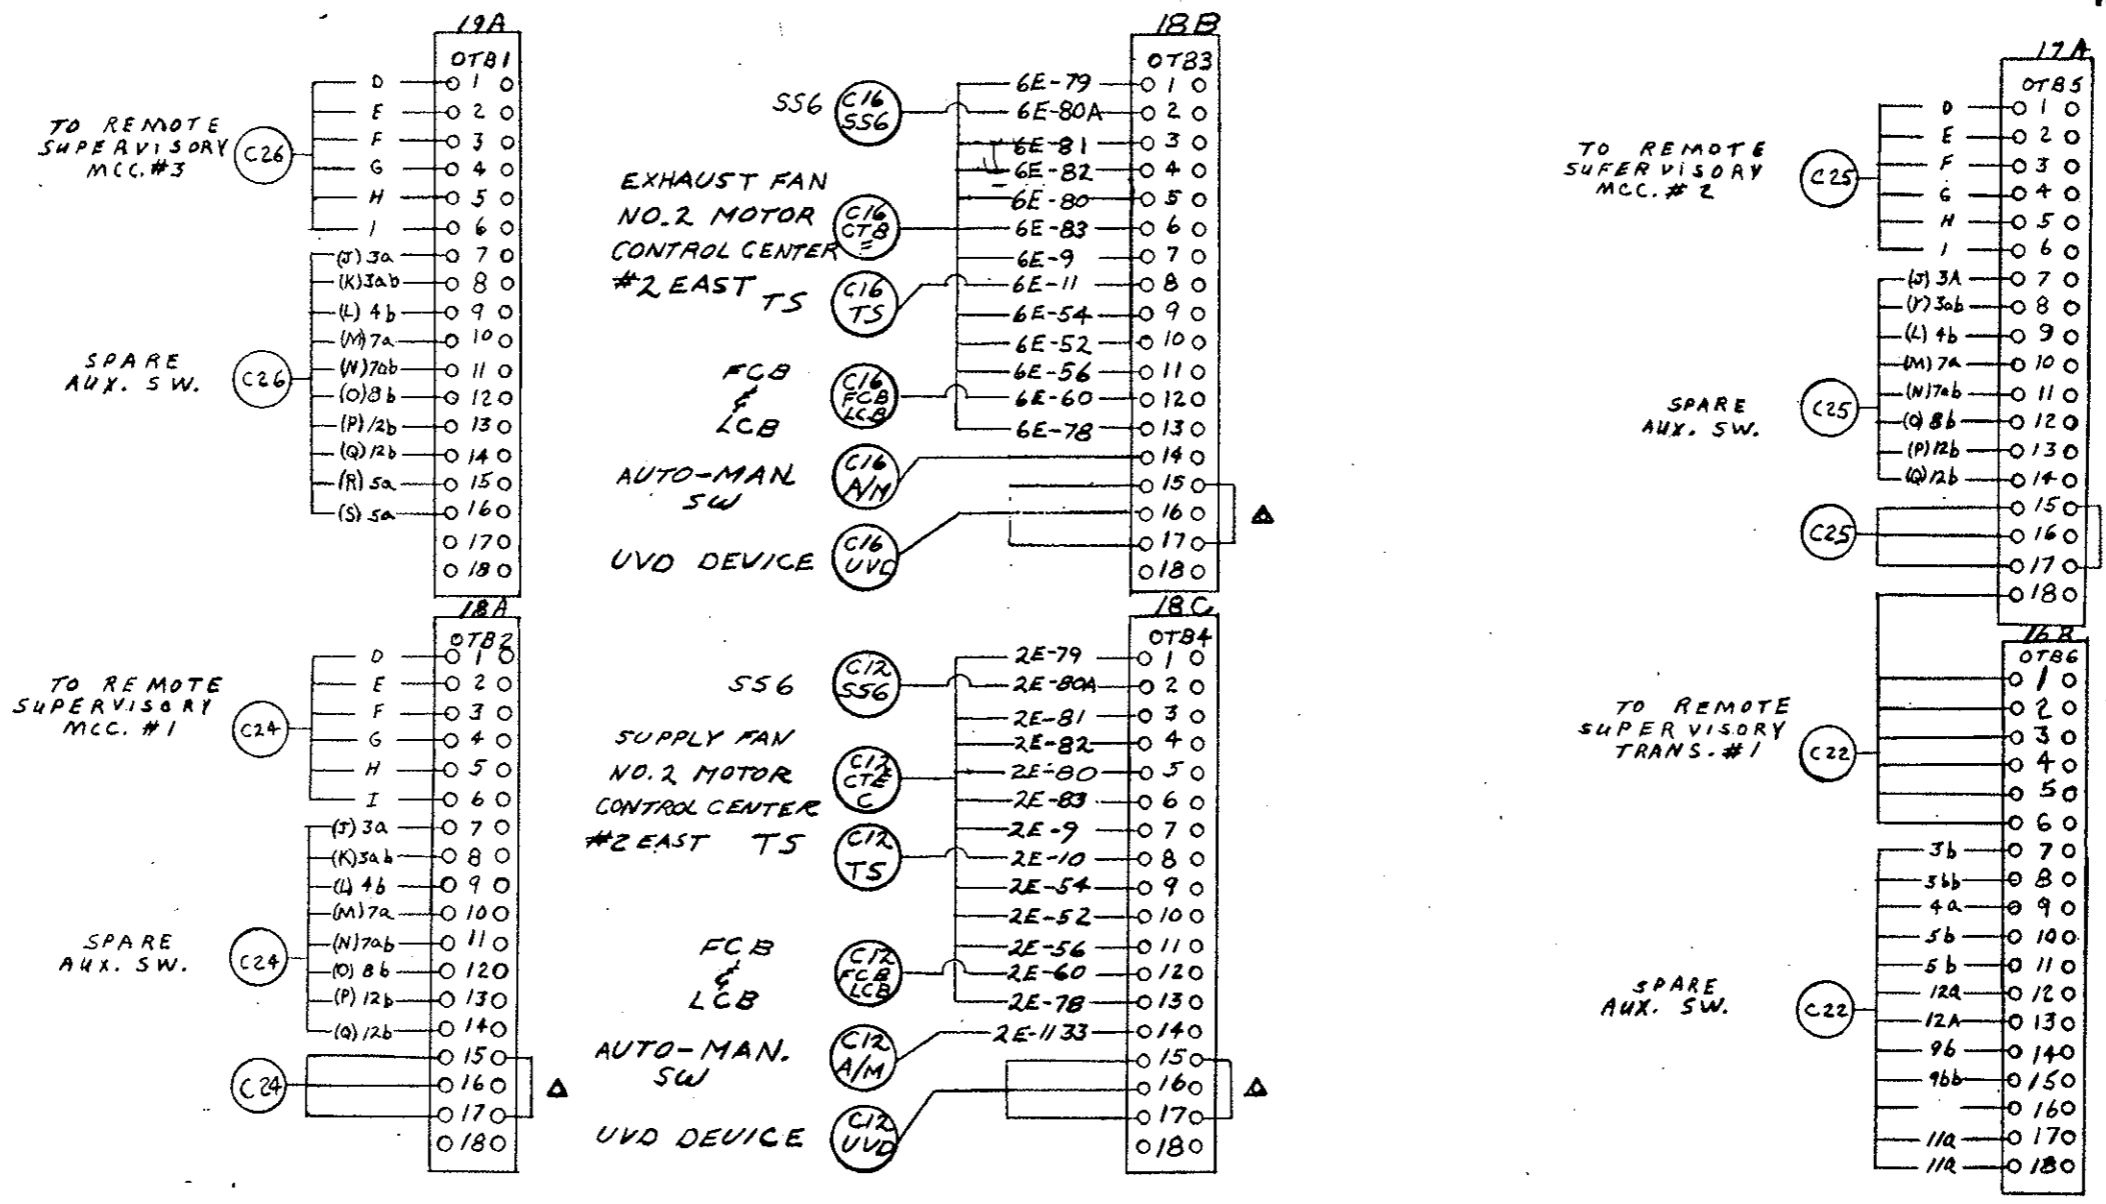 19A
OTB1
TO REMOTE
SUPERVISORY
MCC. #3
C26
D 1
E 2
F 3
G 4
H 5
I 6
(J) 3a 7
(K) 3ab 8
(L) 4b 9
(M) 7a 10
(N) 7ab 11
(O) 8b 12
(P) 12b 13
(Q) 12b 14
(R) 5a 15
(S) 5a 16
17
18
SPARE
AUX. SW.
C26
18A
OTB2
TO REMOTE
SUPERVISORY
MCC. #1
C24
D 1
E 2
F 3
G 4
H 5
I 6
(J) 3a 7
(K) 3ab 8
(L) 4b 9
(M) 7a 10
(N) 7ab 11
(O) 8b 12
(P) 12b 13
(Q) 12b 14
15
16
17
18
SPARE
AUX. SW.
C24
C24
18B
OTB3
SS6
C16
SS6
EXHAUST FAN
NO.2 MOTOR
CONTROL CENTER
#2 EAST TS
C16
CTB
C16
TS
FCB
&
LCB
C16
FCB
LCB
AUTO-MAN.
SW
C16
A/M
UVD DEVICE
C16
UVD
6E-79 1
6E-80A 2
6E-81 3
6E-82 4
6E-80 5
6E-83 6
6E-9 7
6E-11 8
6E-54 9
6E-52 10
6E-56 11
6E-60 12
6E-78 13
14
15
16
17
18
18C
OTB4
SS6
C12
SS6
SUPPLY FAN
NO.2 MOTOR
CONTROL CENTER
#2 EAST TS
C12
C
C12
TS
FCB
&
LCB
C12
FCB
LCB
AUTO-MAN.
SW
C12
A/M
UVD DEVICE
C12
UVD
2E-79 1
2E-80A 2
2E-81 3
2E-82 4
2E-80 5
2E-83 6
2E-9 7
2E-10 8
2E-54 9
2E-52 10
2E-56 11
2E-60 12
2E-78 13
2E-1133 14
15
16
17
18
17A
OTB5
TO REMOTE
SUPERVISORY
MCC. #2
C25
D 1
E 2
F 3
G 4
H 5
I 6
(J) 3A 7
(Y) 3ab 8
(L) 4b 9
(M) 7a 10
(N) 7ab 11
(O) 8b 12
(P) 12b 13
(Q) 12b 14
15
16
17
18
SPARE
AUX. SW.
C25
C25
OTB6
TO REMOTE
SUPERVISORY
TRANS. #1
C22
1
2
3
4
5
6
3b 7
3bb 8
4a 9
5b 10
5b 11
12a 12
12A 13
9b 14
9bb 15
16
11a 17
11a 18
SPARE
AUX. SW.
C22